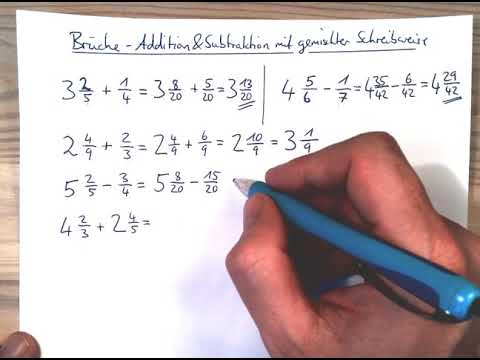 Brüche - Addition & Subtraktion mit gemischter Schreibweise
3 2/5 + 1/4 = 3 8/20 + 5/20 = 3 13/20
4 5/6 - 1/7 = 4 35/42 - 6/42 = 4 29/42
2 4/9 + 2/3 = 2 4/9 + 6/9 = 2 10/9 = 3 1/9
5 2/5 - 3/4 = 5 8/20 - 15/20
4 2/3 + 2 4/5 =